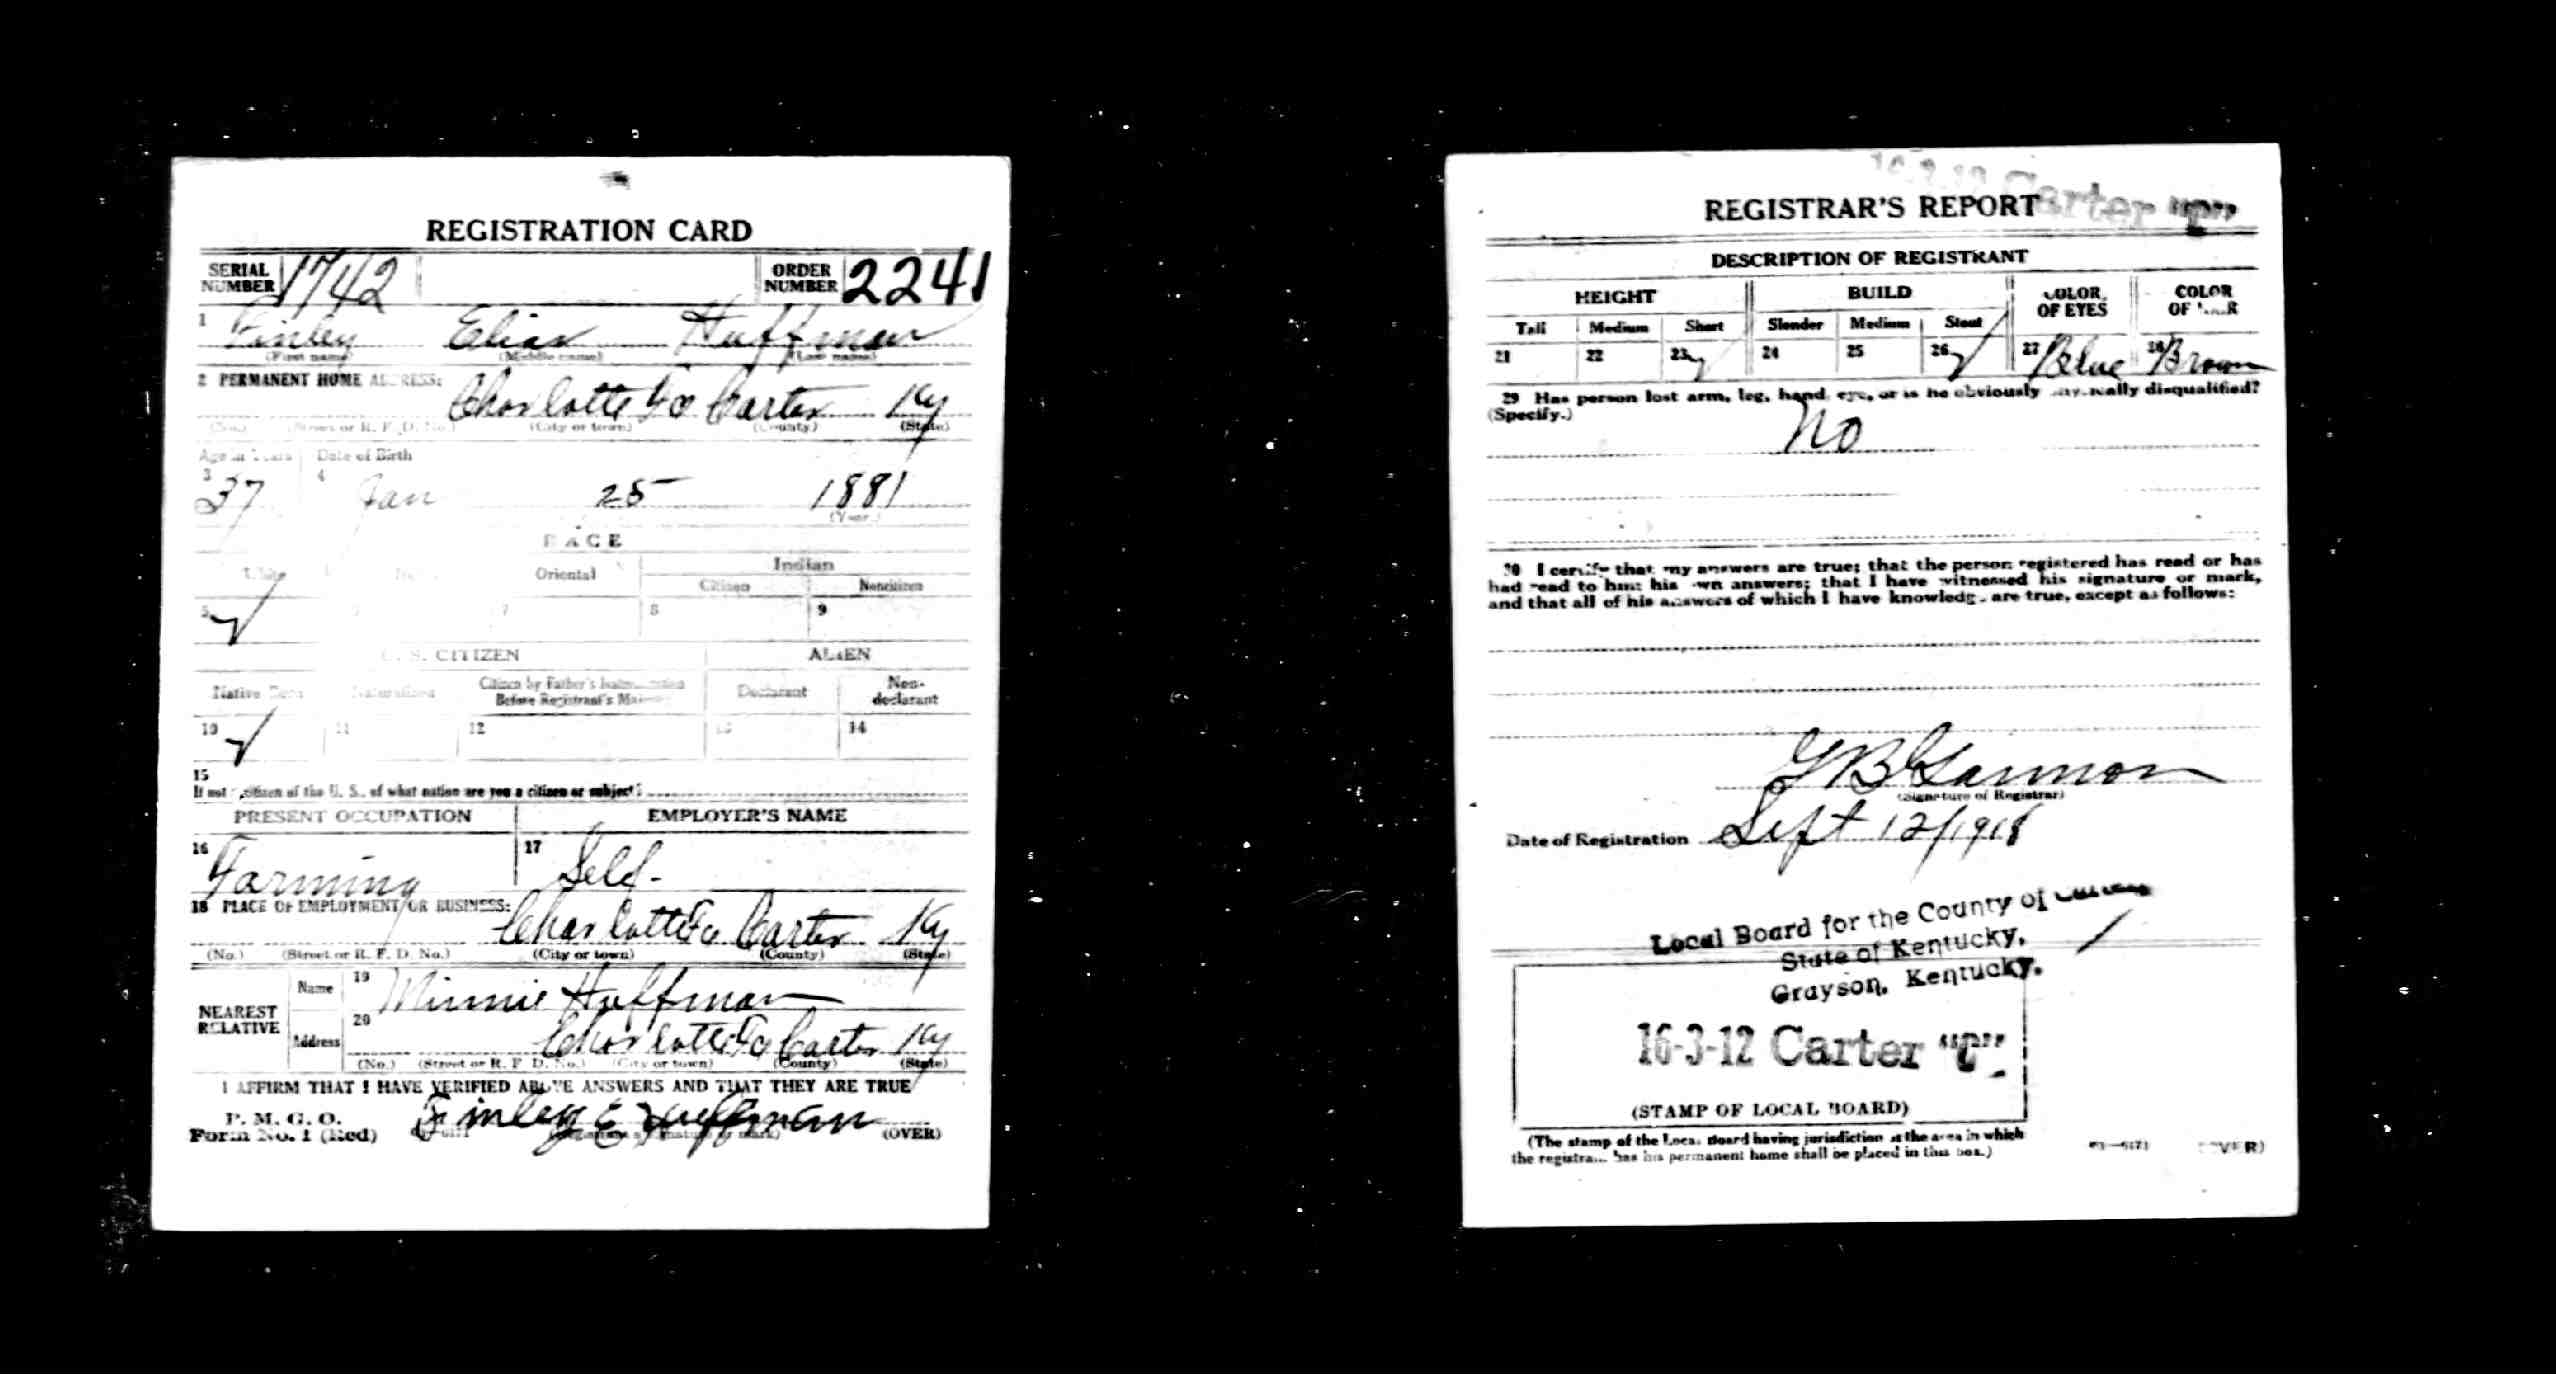 REGISTRATION CARD
SERIAL NUMBER 1742 ORDER NUMBER 2241
1 Finley Elias Huffman
(First name) (Middle name) (Last name)
2 PERMANENT HOME ADDRESS:
Charlotte Fc Carter Ky
(No.) (Street or R. F. D. No.) (City or town) (County) (State)
Age in Years Date of Birth
3 37 4 Jan 25 1881
(Year.)
RACE
White Oriental Indian
Citizen Noncitizen
5 ✓ 7 8 9
U. S. CITIZEN ALIEN
Native Born Naturalized Citizen by Father's Naturalization Before Registrant's Majority Declarant Non-declarant
10 ✓ 11 12 13 14
15
If not a citizen of the U. S., of what nation are you a citizen or subject?
PRESENT OCCUPATION EMPLOYER'S NAME
16 Farming 17 Self-
18 PLACE OF EMPLOYMENT OR BUSINESS:
Charlotte Fc Carter Ky
(No.) (Street or R. F. D. No.) (City or town) (County) (State)
NEAREST RELATIVE Name 19 Minnie Huffman
Address 20 Charlotte Fc Carter Ky
(No.) (Street or R. F. D. No.) (City or town) (County) (State)
I AFFIRM THAT I HAVE VERIFIED ABOVE ANSWERS AND THAT THEY ARE TRUE
P. M. G. O.
Form No. 1 (Red) Finley E Huffman (OVER)
16-3-12 Carter "C"
REGISTRAR'S REPORT
DESCRIPTION OF REGISTRANT
HEIGHT BUILD COLOR OF EYES COLOR OF HAIR
Tall Medium Short Slender Medium Stout
21 22 23 ✓ 24 25 26 ✓ 27 Blue 28 Brown
29 Has person lost arm, leg, hand, eye, or is he obviously physically disqualified?
(Specify.) No
30 I certify that my answers are true; that the person registered has read or has
had read to him his own answers; that I have witnessed his signature or mark,
and that all of his answers of which I have knowledge are true, except as follows:
G B Garmon
(Signature of Registrar)
Date of Registration Sept 12/1918
Local Board for the County of Carter,
State of Kentucky,
Grayson, Kentucky.
16-3-12 Carter "C"
(STAMP OF LOCAL BOARD)
(The stamp of the Local Board having jurisdiction of the area in which
the registrant has his permanent home shall be placed in this box.)
(OVER)